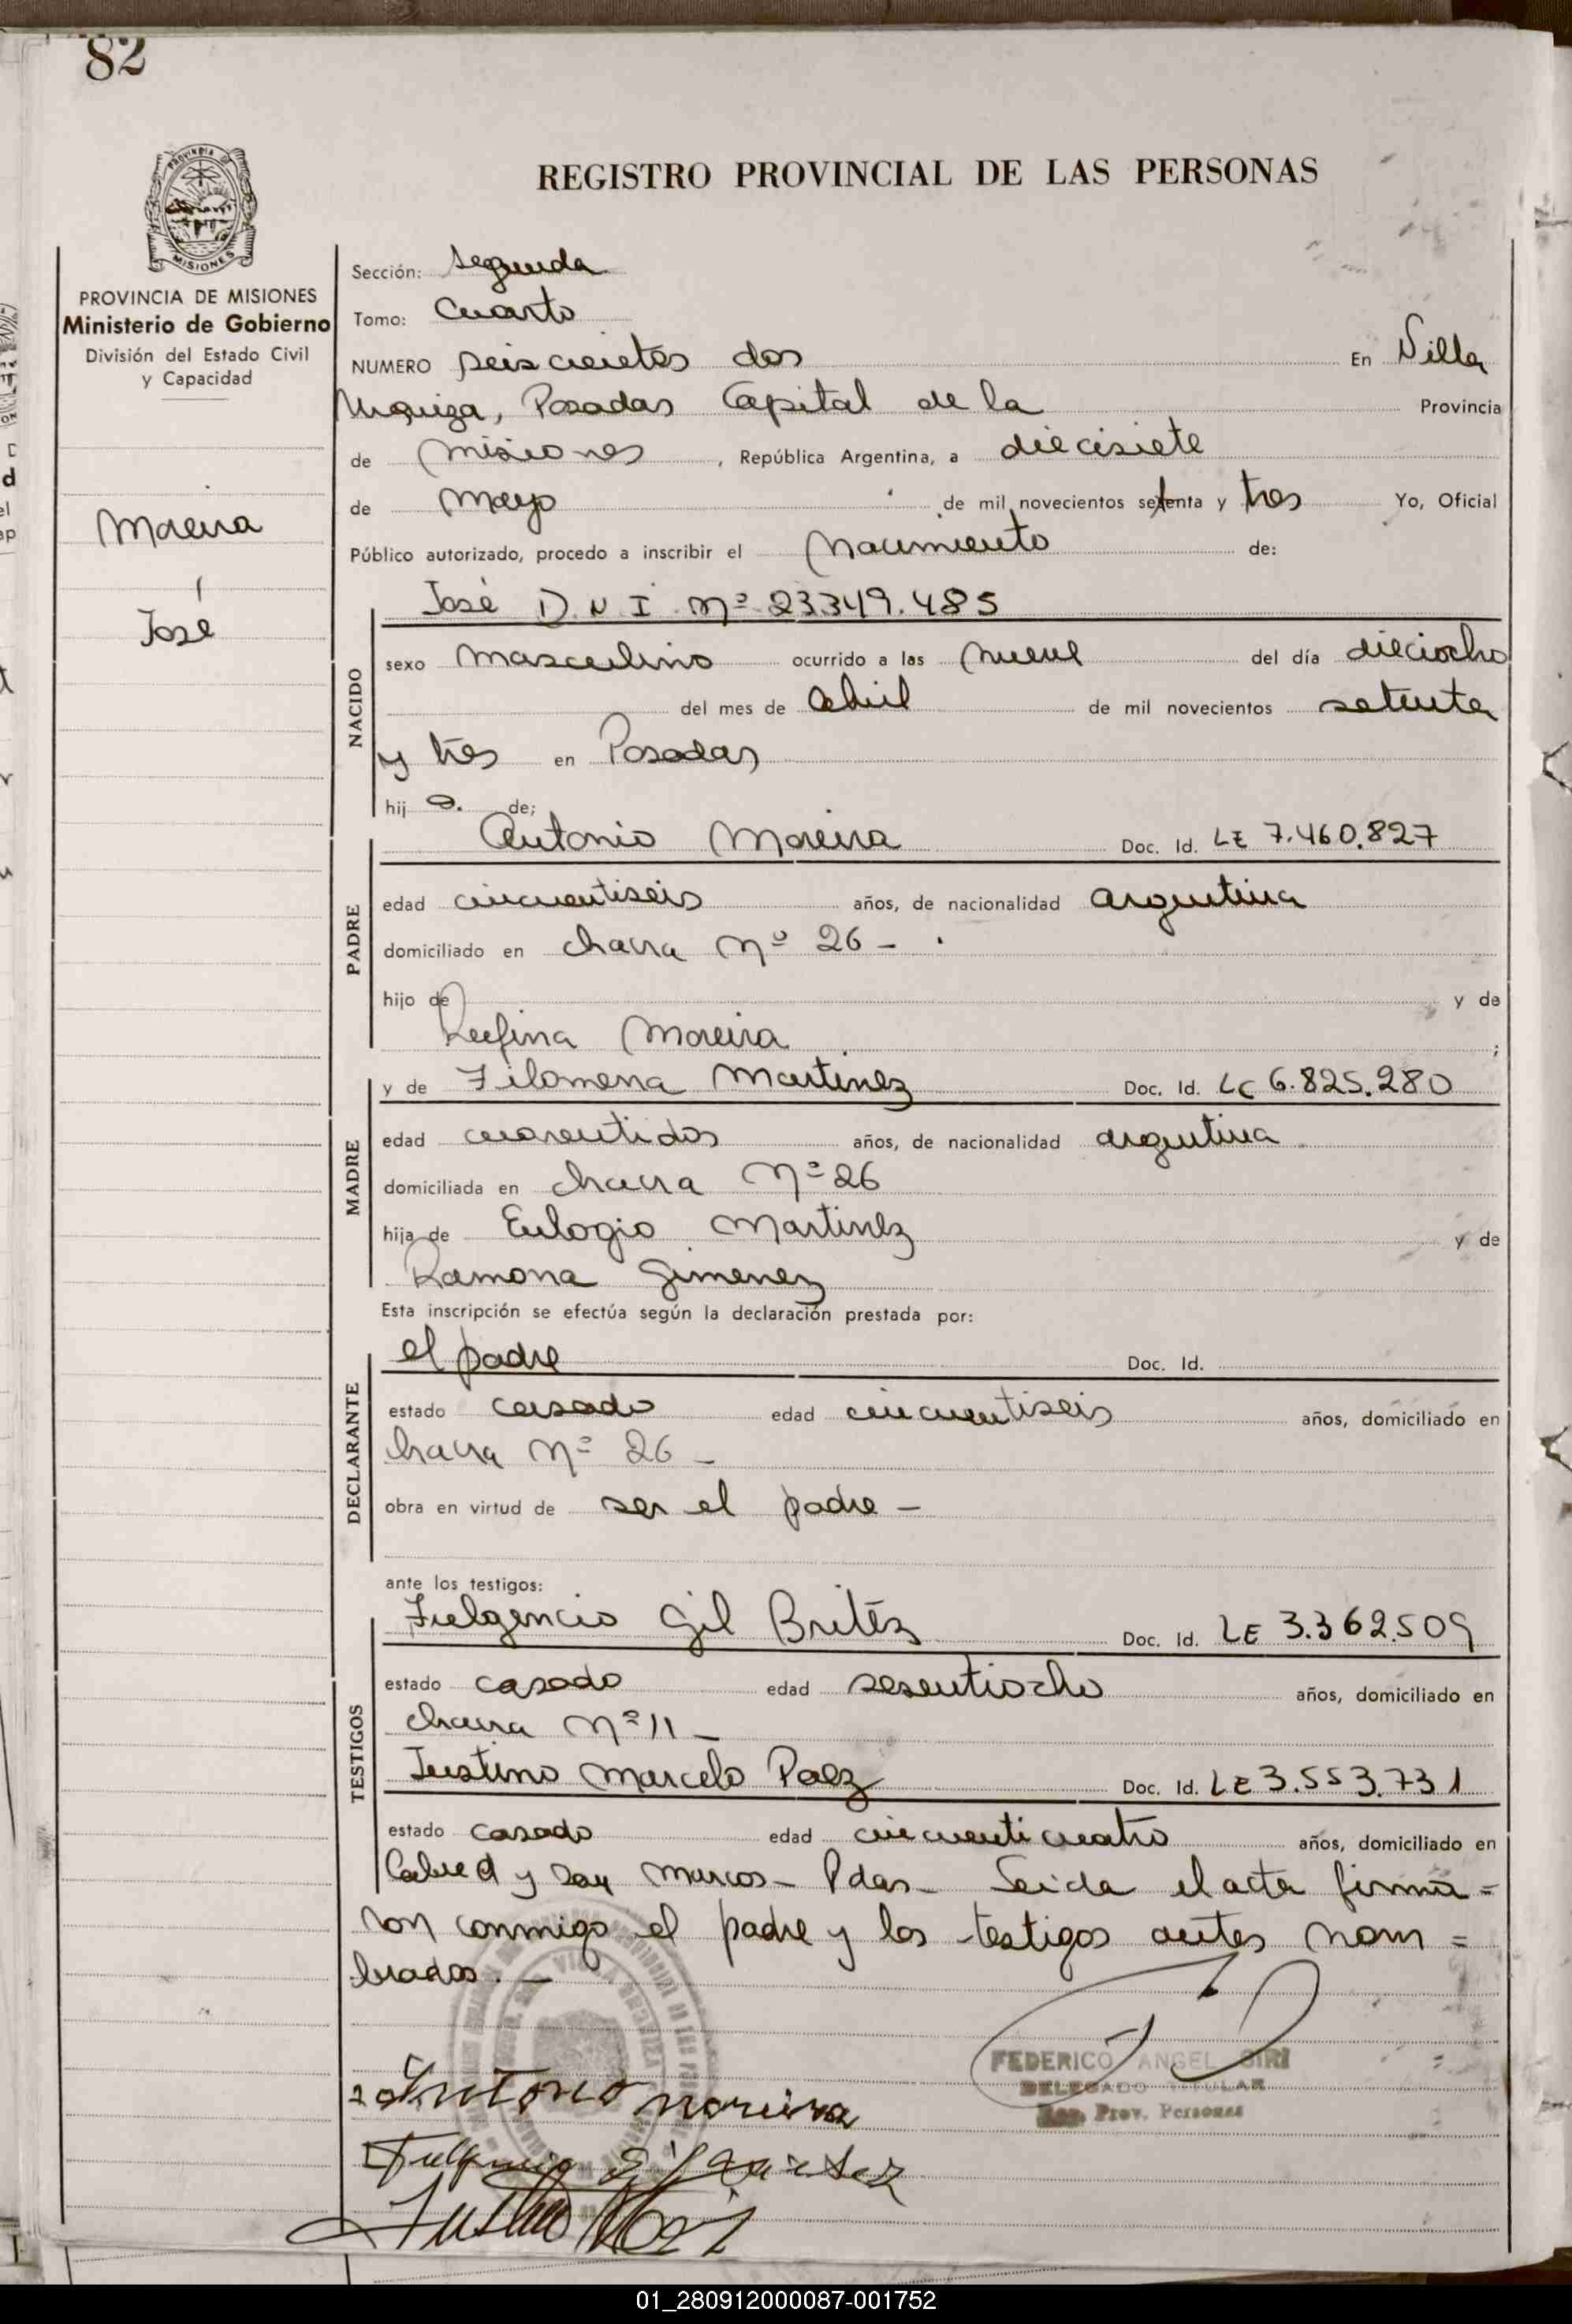 82
REGISTRO PROVINCIAL DE LAS PERSONAS
PROVINCIA DE MISIONES
Ministerio de Gobierno
División del Estado Civil
y Capacidad
Moreira
José
Sección: Segunda
Tomo: Cuarto
NUMERO seiscientos dos En Villa
Urquiza, Posadas Capital de la Provincia
de Misiones, República Argentina, a diecisiete
de Mayo de mil novecientos setenta y tres Yo, Oficial
Público autorizado, procedo a inscribir el Nacimiento de:
José D.N.I. Nº 23349.485
NACIDO
sexo Masculino ocurrido a las nueve del día dieciocho
del mes de Abril de mil novecientos setenta
y tres en Posadas
hij o. de;
Antonio Moreira Doc. Id. LE 7.460.827
PADRE
edad cincuentiseis años, de nacionalidad argentina
domiciliado en chacra Nº 26 -
hijo de y de
Rufina Moreira ;
y de Filomena Martinez Doc. Id. LC 6.825.280
MADRE
edad cuarentidos años, de nacionalidad argentina
domiciliada en chacra Nº 26
hija de Eulogio Martinez y de
Ramona Gimenez
Esta inscripción se efectúa según la declaración prestada por:
el padre Doc. Id.
DECLARANTE
estado casado edad cincuentiseis años, domiciliado en
chacra Nº 26 -
obra en virtud de ser el padre -
ante los testigos:
Fulgencio Gil Britéz Doc. Id. LE 3.362.509
TESTIGOS
estado casado edad sesentiocho años, domiciliado en
chacra Nº 11 -
Justino Marcelo Paez Doc. Id. LE 3.553.731
estado casado edad cincuenticuatro años, domiciliado en
Cabred y San Marcos - Pdas - Leida el acta firma=
ron conmigo el padre y los testigos antes nom=
brados. -
FEDERICO ANGEL GIRI
DELEGADO TITULAR
Reg. Prov. Personas
Antonio Moreira
01_280912000087-001752